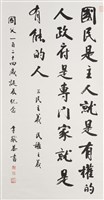 國民是主人就是有權的
人政府是專門家就是
有能的人
三民主義 民權主義
國父一百二十四歲誕辰紀念